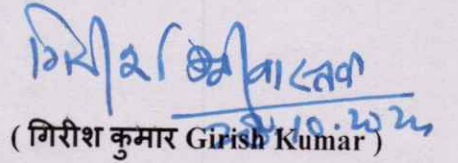 गिरीश श्रीवास्तव
( गिरीश कुमार Girish Kumar )